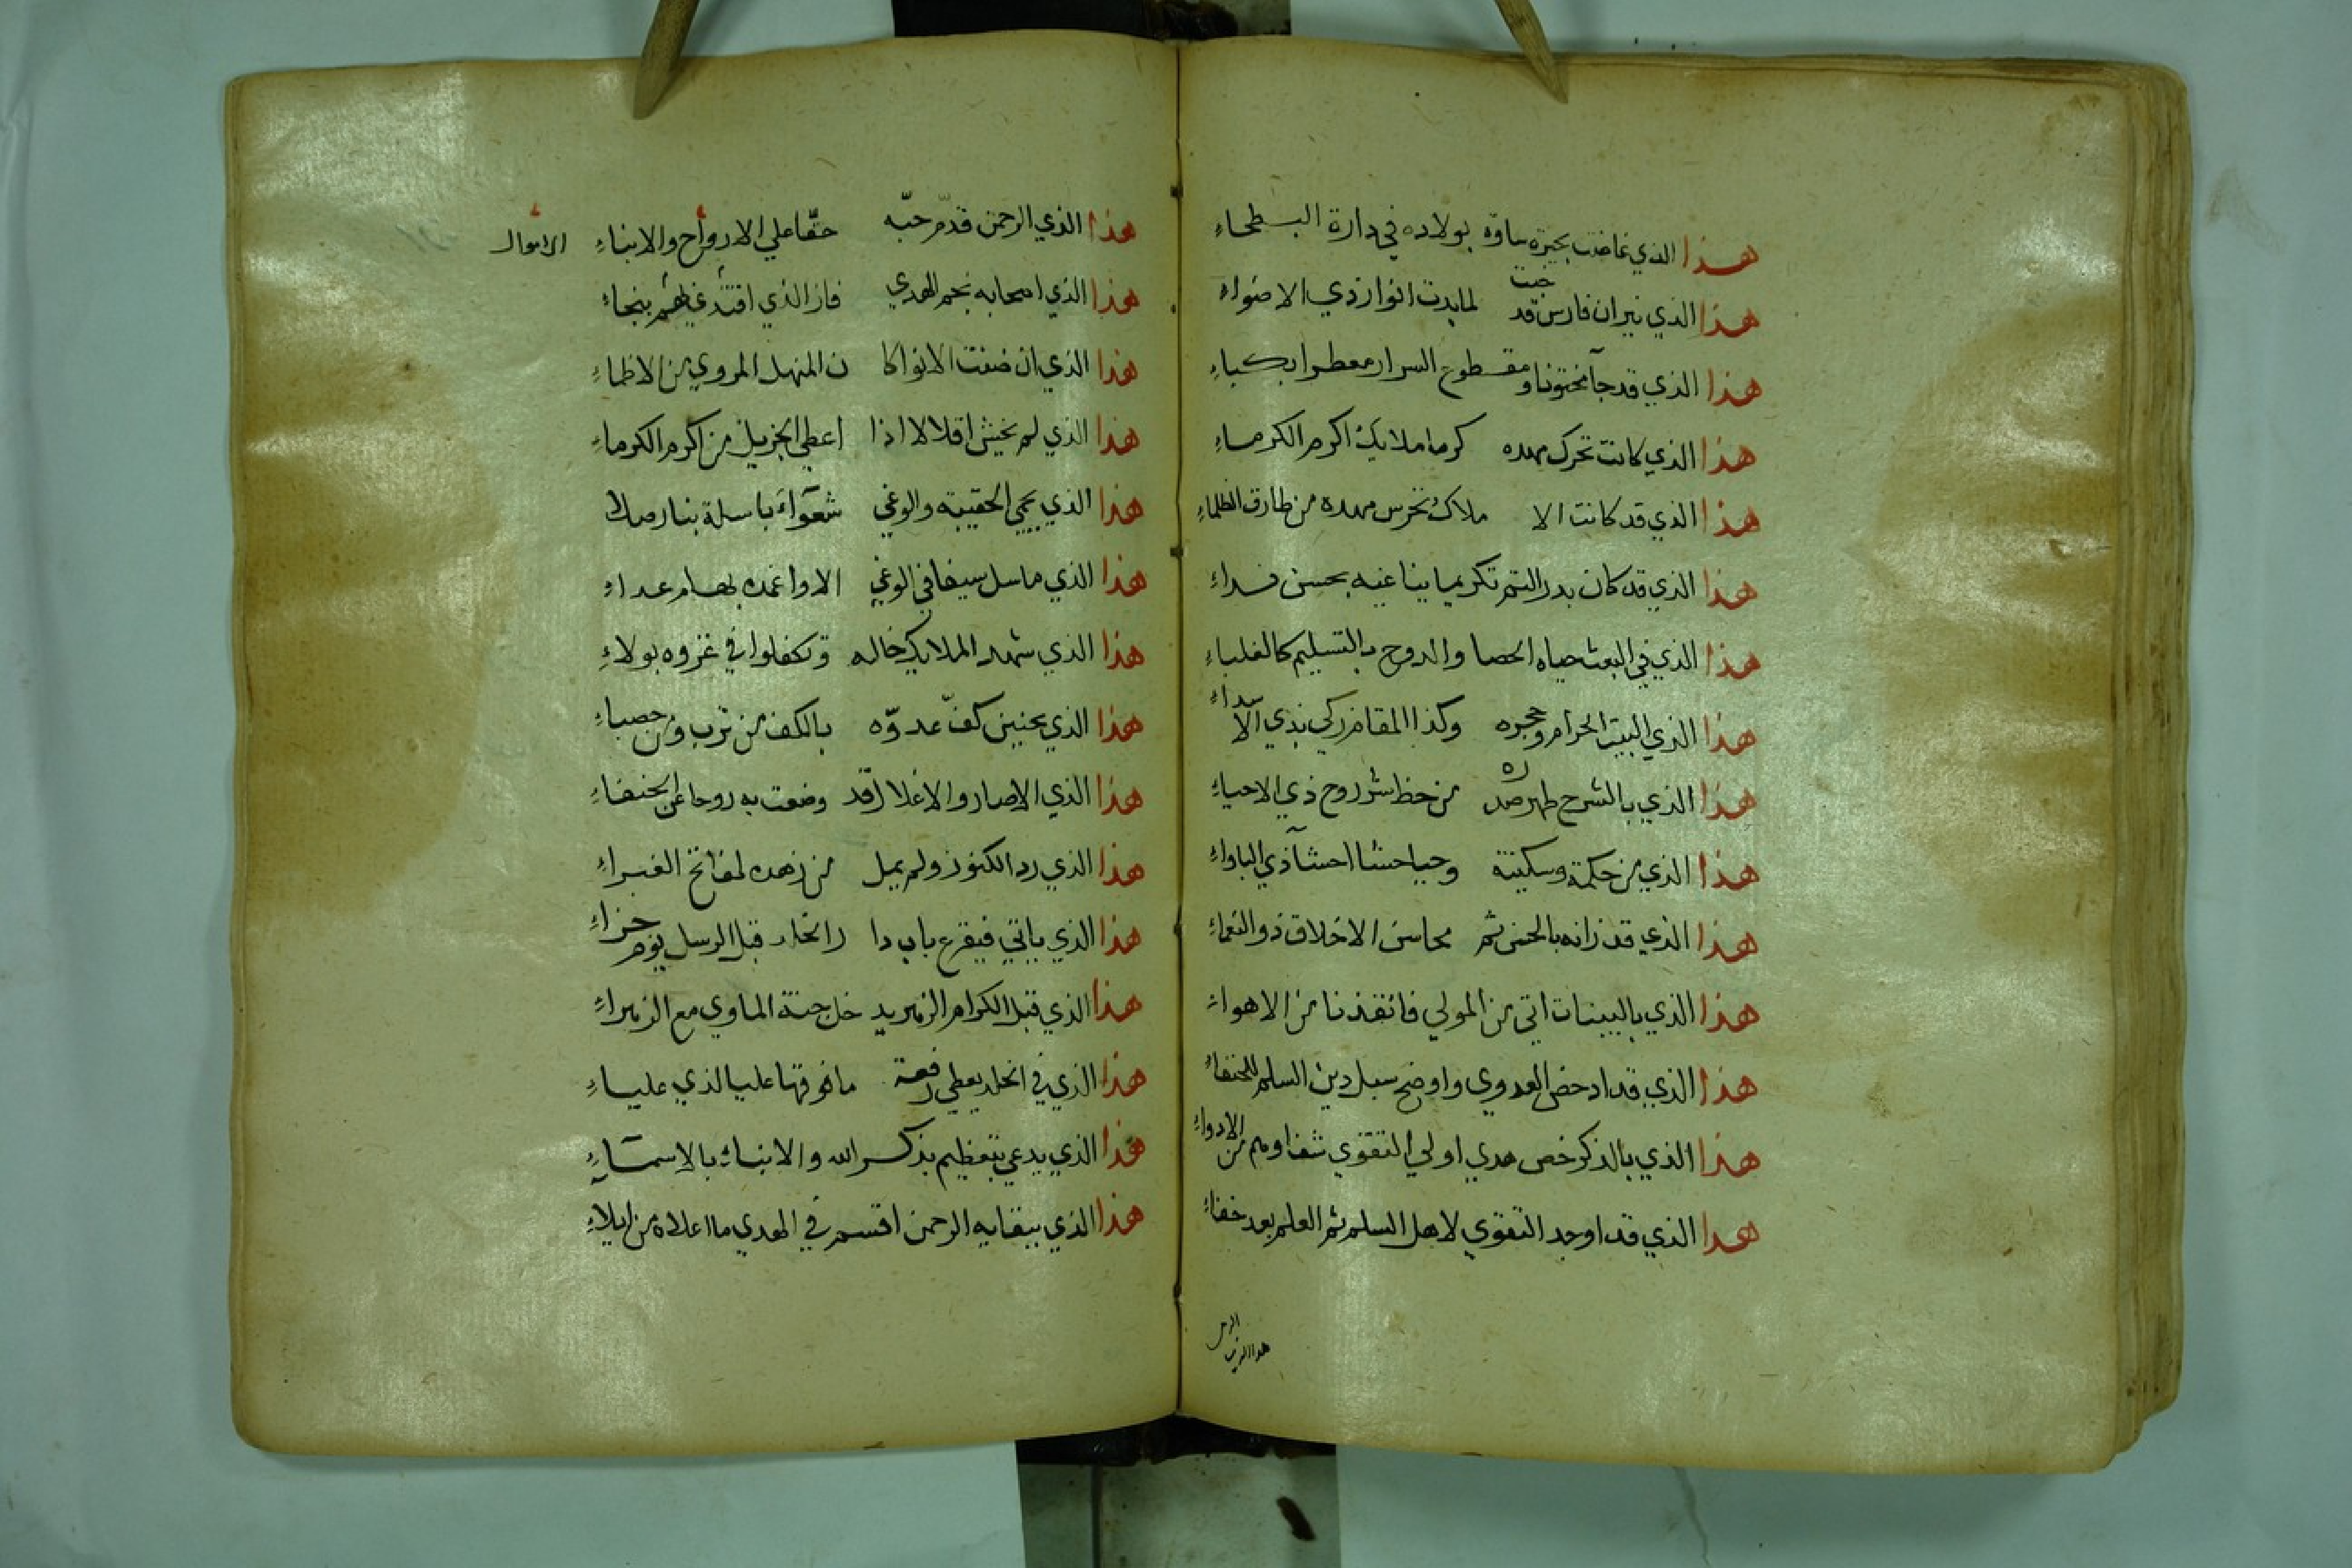 هذا الذي غاضت بحيرة ساوة بولاده في دارة البسطحاء
هذا الذي نيران فارس قد خبت لما بدت انوار ذي الاضواء
هذا الذي قد جآ مختونا ومقسطوع السرار معطرا بكباء
هذا الذي كانت تحرك مهده كرما ملايك اكرم الكرماء
هذا الذي قد كانت الا ملاك تحرس مهده من طارق الظلماء
هذا الذي قد كان بدر التم تكريما يناغيه بحسن نداء
هذا الذي في البعث حياه الحصا والدوح بالتسليم كالغلباء
هذا الذي البيت الحرام وحجره وكذا المقام زكي بذي الاسداء
هذا الذي بالشرح طهر صدره من حظ شر روح ذي الاحياء
هذا الذي من حكمة وسكينة وحيا حشا احشآ ذي الباواء
هذا الذي قد زانه بالحسن ثم محاسن الاخلاق ذو النعماء
هذا الذي بالبينات اتى من المولي فانقذنا من الاهواء
هذا الذي قد ادحض العدوي واوضح سبل دين السلم للحنفاء
هذا الذي بالذكر خص هدي اولي التقوي شفاوهم من الادواء
هدا الذي قد اوجد التقوي لاهل السلم ثم العلم بعد خفاء
هذا الذي
هذا الذي الرحمن قدم حبه حقا علي الارواح والابناء
الاموال
هذا الذي اصحابه نجم الهدي فاز الذي اقتد بنجاء
هذا الذي ان ضنت الانوا كا ن المنهل المروي من الاظماء
هذا الذي لم يخش اقلالا اذا اعطي الجزيل من اكرم الكرماء
هذا الذي يحمي الحقيبه والوغي شعوآء باسلة بنار صلاء
هذا الذي ما سل سيفا في الوغي الا واغمده بهام عداء
هذا الذي شهد الملايك خاله وتكفلوا في غزوه بولاء
هذا الذي بحنين كف عدوه بالكف من ترب ومن حصباء
هذا الذي الاصار والاغلال قد وضعت به روحا عن الحنفاء
هذا الذي رد الكنوز ولم يمل من زهده لمفاتح الغبراء
هذا الذي ياتي فيقرع باب دا ر الخلد قبل الرسل يوم جزاء
هذا الذي قبل الكرام الزهر يد خل جنة الماوي مع الزهراء
هذا الذي في الخلد يعطي رفعة ما فوقها عليا لذي علياء
هذا الذي يدعي بتعظيم بذكر الله والانباء بالاسمآء
هذا الذي ببقايه الرحمن اقسم في الهدي ما اعلاه من ايلآء